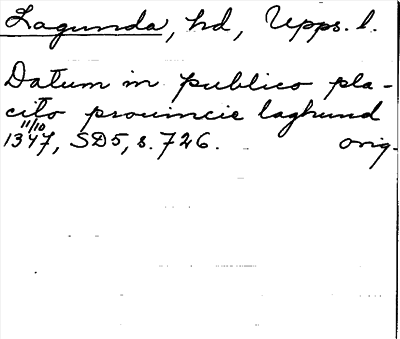 Lagunda, hd, Upps. l.
Datum in publico pla-
cito prouincie laghund
11/10 1347, SD5, s. 726. orig.